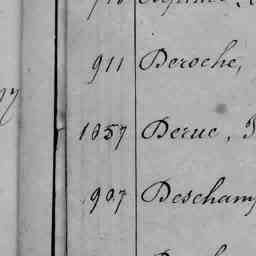 911 Deroche,
1057 Derue,
907 Deschamp